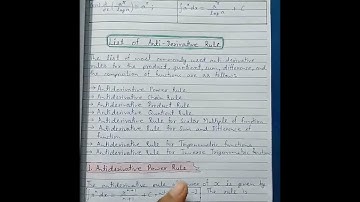 List of Anti-Derivative Rule
The list of most commonly used anti derivative
rules for the product, quotient, sum, difference, and the
composition of functions are as follows :-
→ Antiderivative Power Rule
→ Antiderivative Chain Rule
→ Antiderivative Product Rule
→ Antiderivative Quotient Rule
→ Antiderivative Rule for Scalar Multiple of function
→ Antiderivative Rule for Sum and Difference of
function
→ Antiderivative Rule for Trigonometric functions
→ Antiderivative Rule for Inverse Trigonometric functions
1. Antiderivative Power Rule :-
The antiderivative rule of x is given by
The rule is